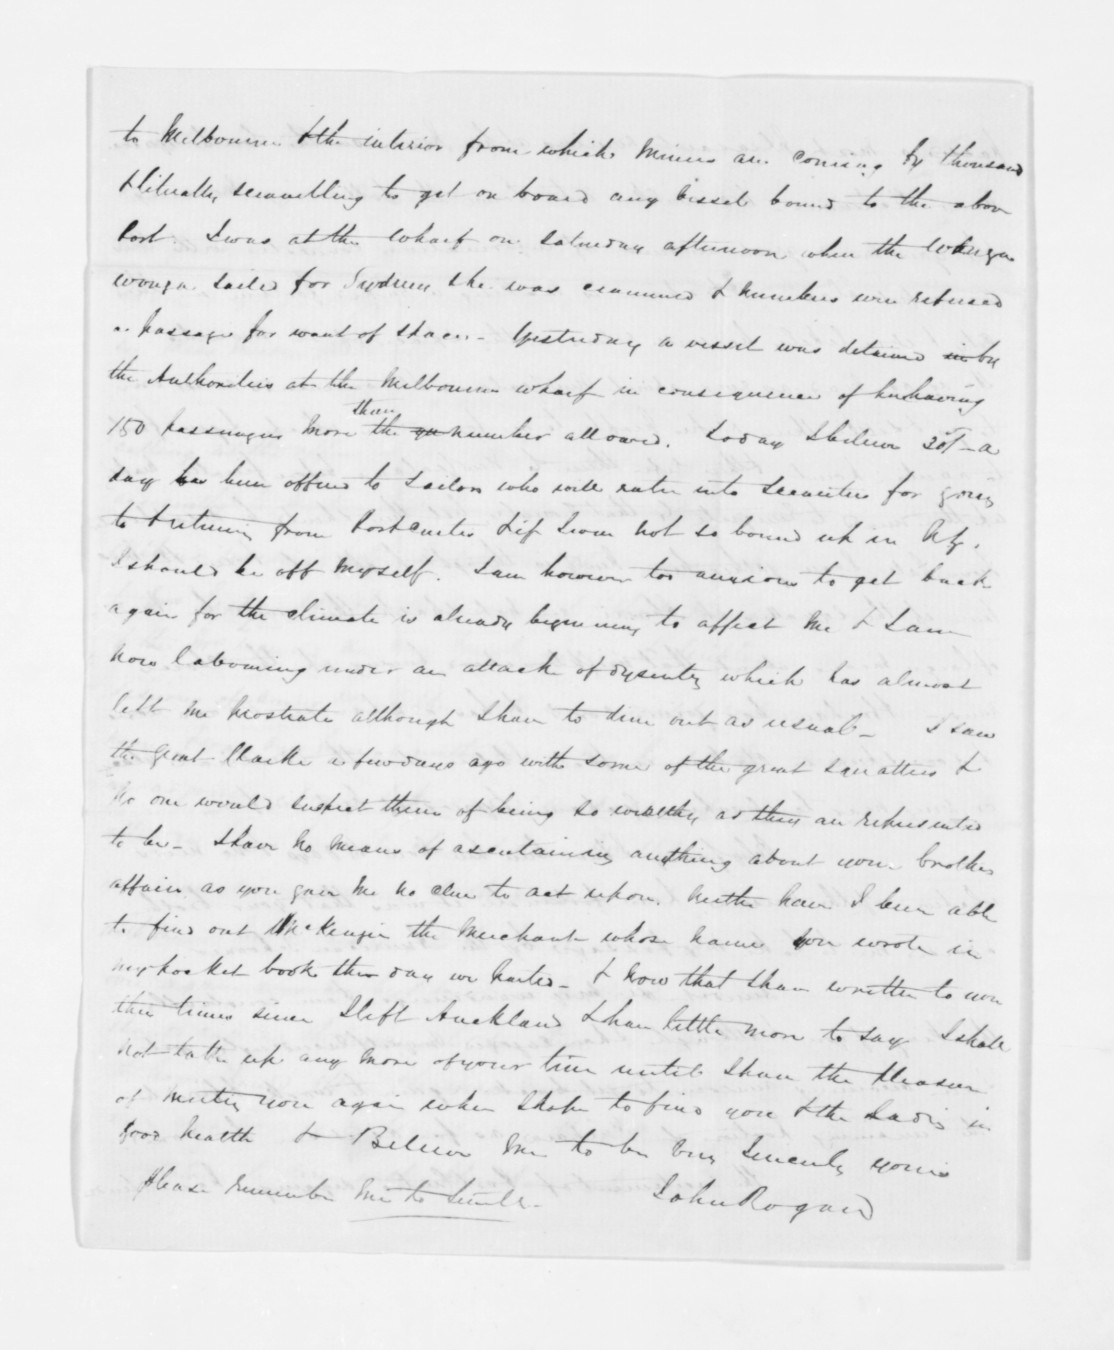 to Melbourne & the interior from which Miners are coming by thousand
& litually scrambling to get on board any vessel bound to the above
Port. I was at the Wharf on Saturday afternoon when the Wonga
wonga sailed for Sydney she was examined & numbers were refused
a passage for want of space - Yesterday a vessel was detained in by
the Authorities at the Melbourne wharf in consequence of her having
than
150 passengers more the number allowed. Today I believe 20/- a
day has been offered to Sailors who will enter into Securities for going
to & returning from Port Curtis & if I was not so bound up in
I should be off myself. I am however too anxious to get back
again for the climate is already beginning to affect me & I am
now labouring under an attack of dysentry which has almost
left me prostrate although I have to dine out as usual - I saw
the great Clarke a few days ago with some of the great Squatters &
no one would suspect them of being so wealthy as they are represented
to be - I have no means of ascertaining anything about your brothers
affairs as you gave me no clue to act upon. Neither have I been able
to find out McKenzie the Merchant whose name you wrote in
my pocket book the day we parted - & now that I have written to you
three times since I left Auckland & have little more to say I shall
not take up any more of your time until I have the pleasure
of meeting you again when I hope to find you & the Ladies in
good health & Believe me to be Very Sincerely yours
Please remember me to John Rogan